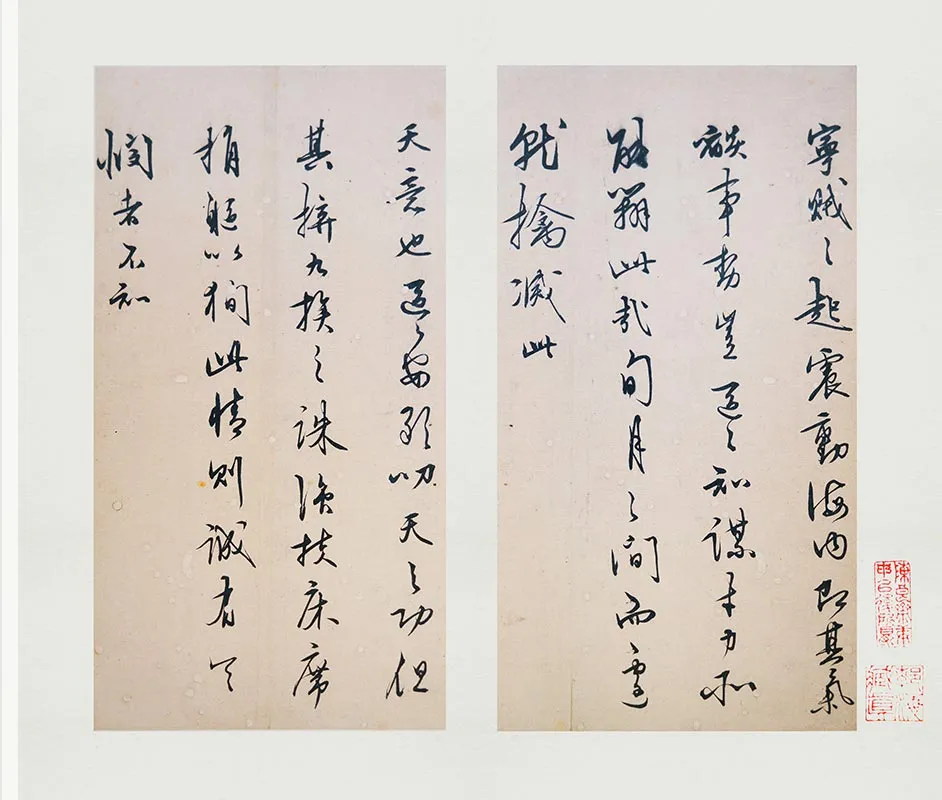 寧賊之起震動海内即其氣
燄事勢豈區々知謀才力所
能辦此哉旬月之間而遽
就擒滅此
天意也區々安敢叨天之功但
其拚九族之誅強扶床席
捐軀以狥此情則誠有可
憫者不知